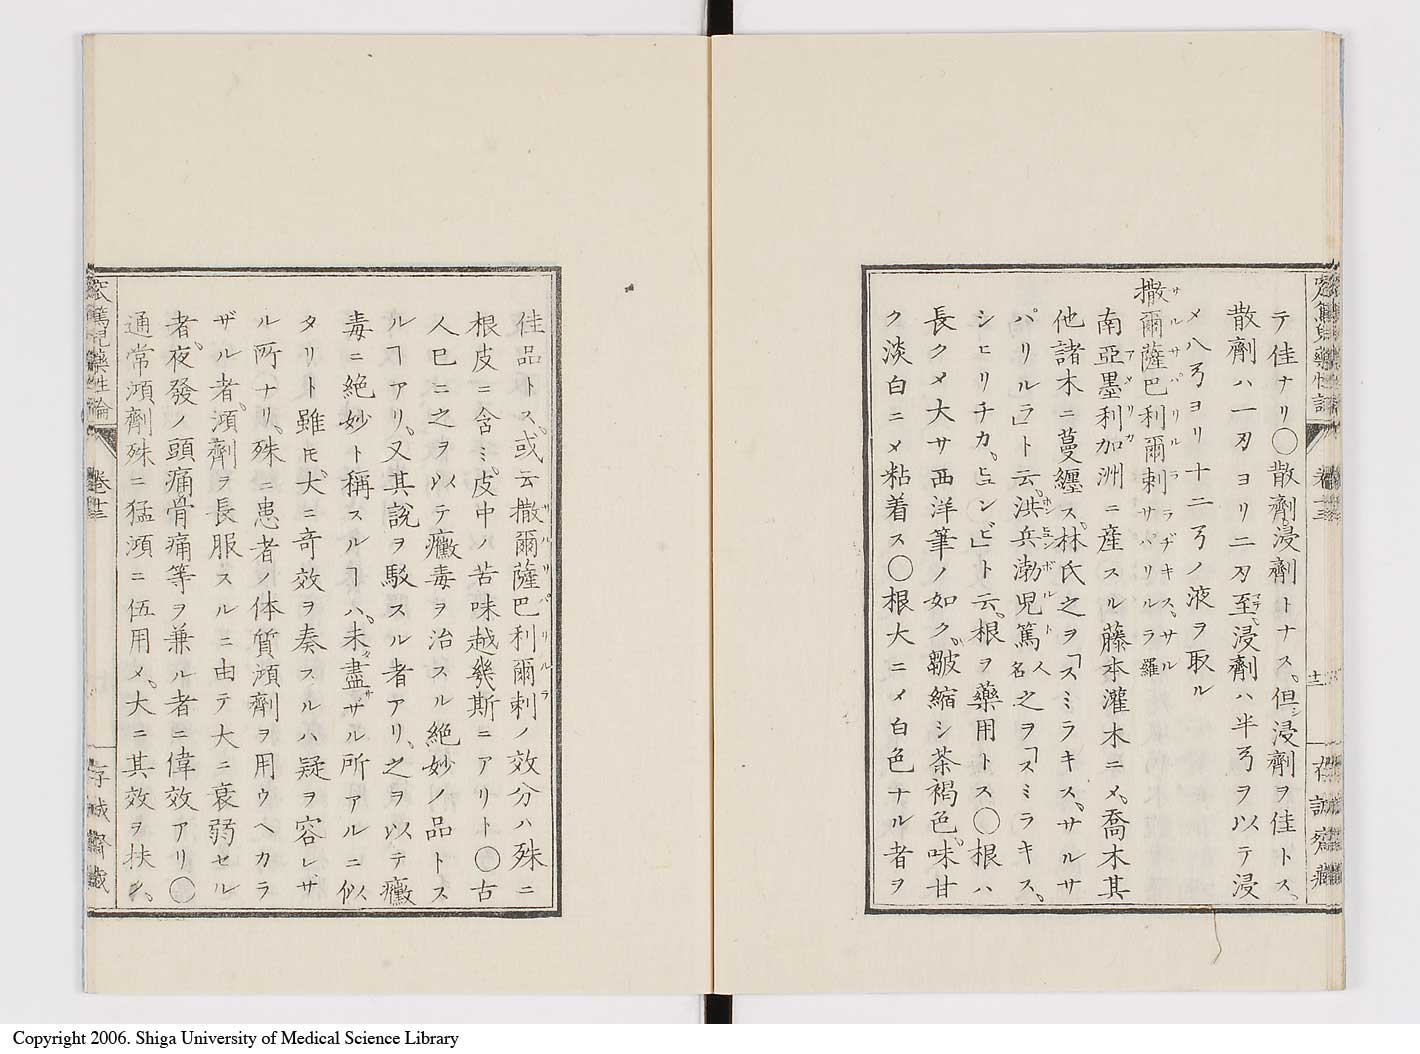 テ佳ナリ〇散劑浸劑トナス但シ浸劑ヲ佳トス、
散劑ハ一刄ヨリ二刄至マデ、浸劑ハ半弓ヲ以テ浸
メ八弓ヨリ十二弓ノ液ヲ取ル
撒爾薩巴利爾剌サルサパリルラ ラヂキス、サルサパリルラ羅
南亞墨利加アメリカ洲ニ産スル藤本灌木ニメ、喬木其
他諸木ニ蔓纏ス、林氏之ヲ「スミラキス、サルサ
パリルラ」ト云、洪兵渤児篤ホンボルト人名之ヲ「スミラキス、
シヒリチカ、ヒュンビ」ト云、根ヲ藥用トス〇根ハ
長クメ大サ西洋筆ノ如ク、皺縮シ茶褐色、味甘
ク淡白ニメ粘着ス〇根大ニメ白色ナル者ヲ
佳品トス、或云撒爾薩巴利爾剌サルサパリルラノ效分ハ殊ニ
根皮ニ含ミ、皮中ノ苦味越幾斯ニアリト〇古
人已ニ之ヲ以テ黴毒ヲ治スル絶妙ノ品トス
ルヿアリ、又其説ヲ駁スル者アリ、之ヲ以テ黴
毒ニ絶妙ト稱スルヿハ、未タ盡サザル所アルニ似
タリト雖𪜈、大ニ奇效ヲ奏スルハ疑ヲ容レザ
ル所ナリ、殊ニ患者ノ体質澒劑ヲ用ウヘカラ
ザル者、澒劑ヲ長服スルニ由テ大ニ衰弱セル
者、夜發ノ頭痛骨痛等ヲ兼ル者ニ偉效アリ〇
通常澒劑殊ニ猛澒ニ伍用メ、大ニ其效ヲ扶ク、
窊篤児藥性論 卷十三
十二 存誠齋藏
Copyright 2006. Shiga University of Medical Science Library